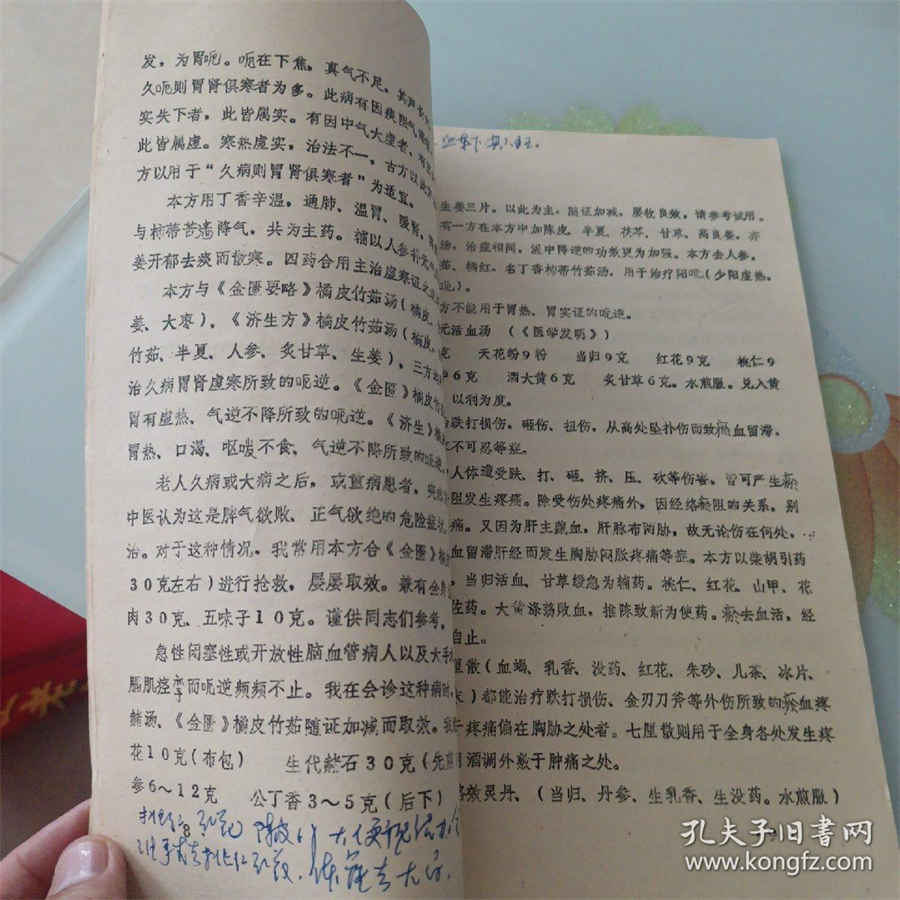 发，为胃呃。呃在下焦，真气不足，其声
久呃则胃肾俱寒者为多。此病有因痰阻气
实失下者，此皆属实。有因中气大虚者，
此皆属虚。寒热虚实，治法不一，古方以此
方以用于“久病则胃肾俱寒者”为适宜。
本方用丁香辛温，通肺、温胃、暖肾，
与柿蒂苦涩降气，共为主药。辅以人参补
姜开郁去痰而散寒。四药合用主治虚寒证
本方与《金匮要略》橘皮竹茹汤（橘皮、
姜、大枣），《济生方》橘皮竹茹汤（橘皮、
竹茹、半夏、人参、炙甘草、生姜），三方
治久病胃肾虚寒所致的呃逆。《金匮》橘皮竹
胃有虚热、气逆不降所致的呃逆。《济生》
胃热、口渴、呕哕不食、气逆不降所致的呃逆，
老人久病或大病之后，或重病患者，
中医认为这是脾气欲败、正气欲绝的危险症状，
治。对于这种情况，我常用本方合《金匮》
30克左右）进行抢救，屡屡取效。兼有
肉30克、五味子10克。谨供同志们参考。
急性闭塞性或开放性脑血管病人以及大手
脑肌痉挛而呃逆频频不止。我在会诊这种病
《金匮》橘皮竹茹随证加减而取效。
花10克（布包） 生代赭石30克（先煎
参6～12克 公丁香3～5克（后下）
8
生姜三片。以此为主，随证加减，屡收良效，请参考试用。
有一方在本方中加陈皮、半夏、茯苓、甘草、高良姜，亦
汤，治症相同，温中降逆的功效更为加强。本方去人参，
茹、橘红，名丁香柿蒂竹茹汤，用于治疗阳呃（少阳虚热
方不能用于胃热、胃实证的呃逆。
元活血汤 （《医学发明》）
克 天花粉9粉 当归9克 红花9克 桃仁9
96克 酒大黄6克 炙甘草6克。水煎服。兑入黄
以利为度。
跌打损伤，砸伤、扭伤，从高处坠扑伤而致瘀血留滞，
不可忍等症。
人体遭受跌、打、砸、挤、压、砍等伤害，皆可产生瘀
阻发生疼痛。除受伤处疼痛外，因经络瘀阻的关系，别
痛。又因为肝主藏血，肝脉布两胁，故无论伤在何处，
血留滞肝经而发生胸胁闷胀疼痛等症。本方以柴胡引药
，当归活血、甘草缓急为辅药。桃仁、红花、山甲、花
佐药。大黄涤荡败血，推陈致新为使药。瘀去血活，经
自止。
厘散（血竭、乳香、没药、红花、朱砂、儿茶、冰片、
）都能治疗跌打损伤、金刃刀斧等外伤所致的瘀血疼
疼痛偏在胸胁之处者。七厘散则用于全身各处发生疼
用酒调外敷于肿痛之处。
络效灵丹、（当归、丹参、生乳香、生没药。水煎服）
孔夫子旧书网
www.kongfz.com